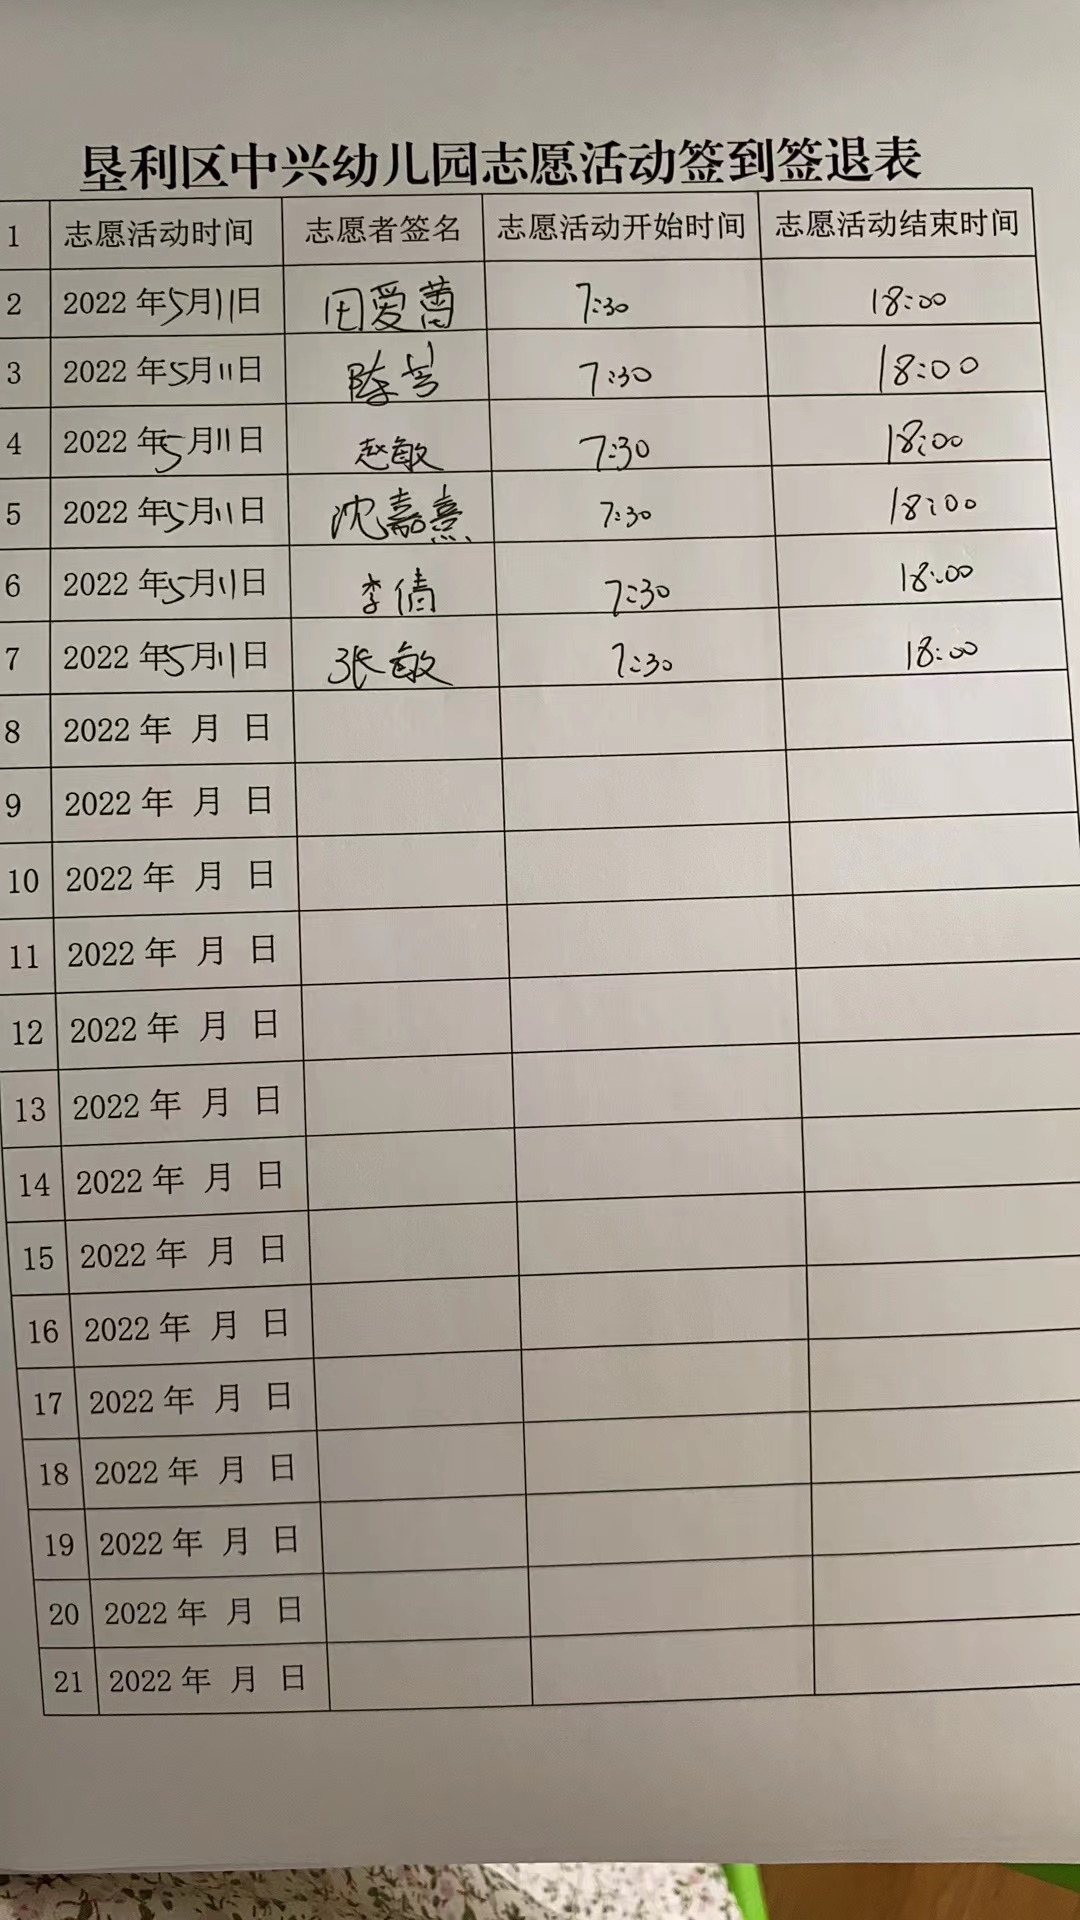 垦利区中兴幼儿园志愿活动签到签退表
1 志愿活动时间 志愿者签名 志愿活动开始时间 志愿活动结束时间
2 2022年5月11日 田爱茵 7:30 18:00
3 2022年5月11日 陈芳 7:30 18:00
4 2022年5月11日 赵敏 7:30 18:00
5 2022年5月11日 沈嘉熹 7:30 18:00
6 2022年5月11日 李倩 7:30 18:00
7 2022年5月11日 张敏 7:30 18:00
8 2022年 月 日
9 2022年 月 日
10 2022年 月 日
11 2022年 月 日
12 2022年 月 日
13 2022年 月 日
14 2022年 月 日
15 2022年 月 日
16 2022年 月 日
17 2022年 月 日
18 2022年 月 日
19 2022年 月 日
20 2022年 月 日
21 2022年 月 日